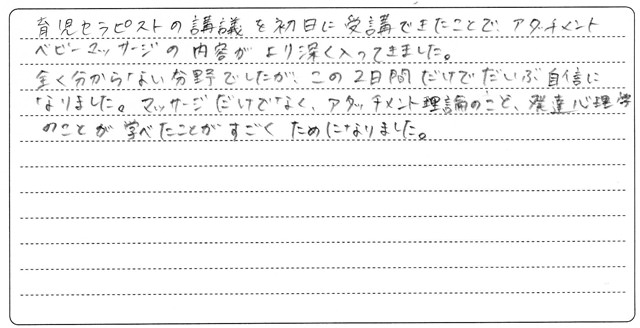 育児セラピストの講議を初日に受講できたことで、アタッチメント
ベビーマッサージの内容がより深く入ってきました。
全く分からない分野でしたが、この2日間だけでだいぶ自信に
なりました。マッサージだけでなく、アタッチメント理論のこと、発達心理学
のことが学べたことがすごくためになりました。